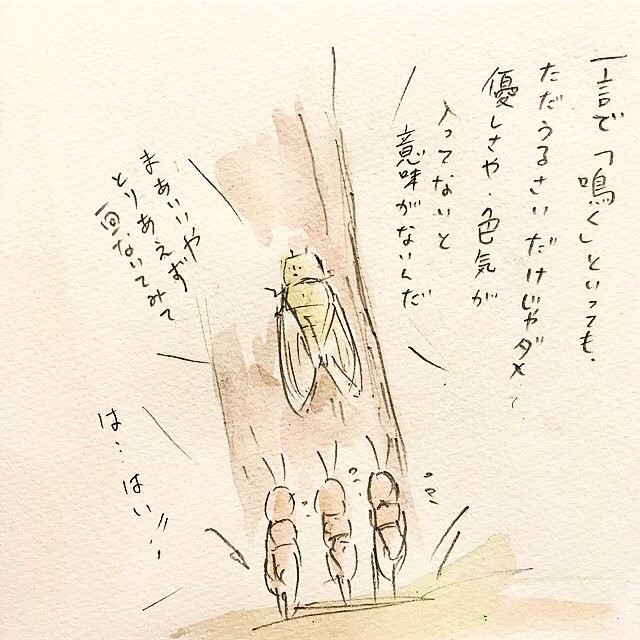 一言で「鳴く」といっても、
ただうるさいだけじゃダメ
優しさや、色気が
入ってないと
意味がないんだ
まあいいや
とりあえず
一回ないてみて
は…はい!!